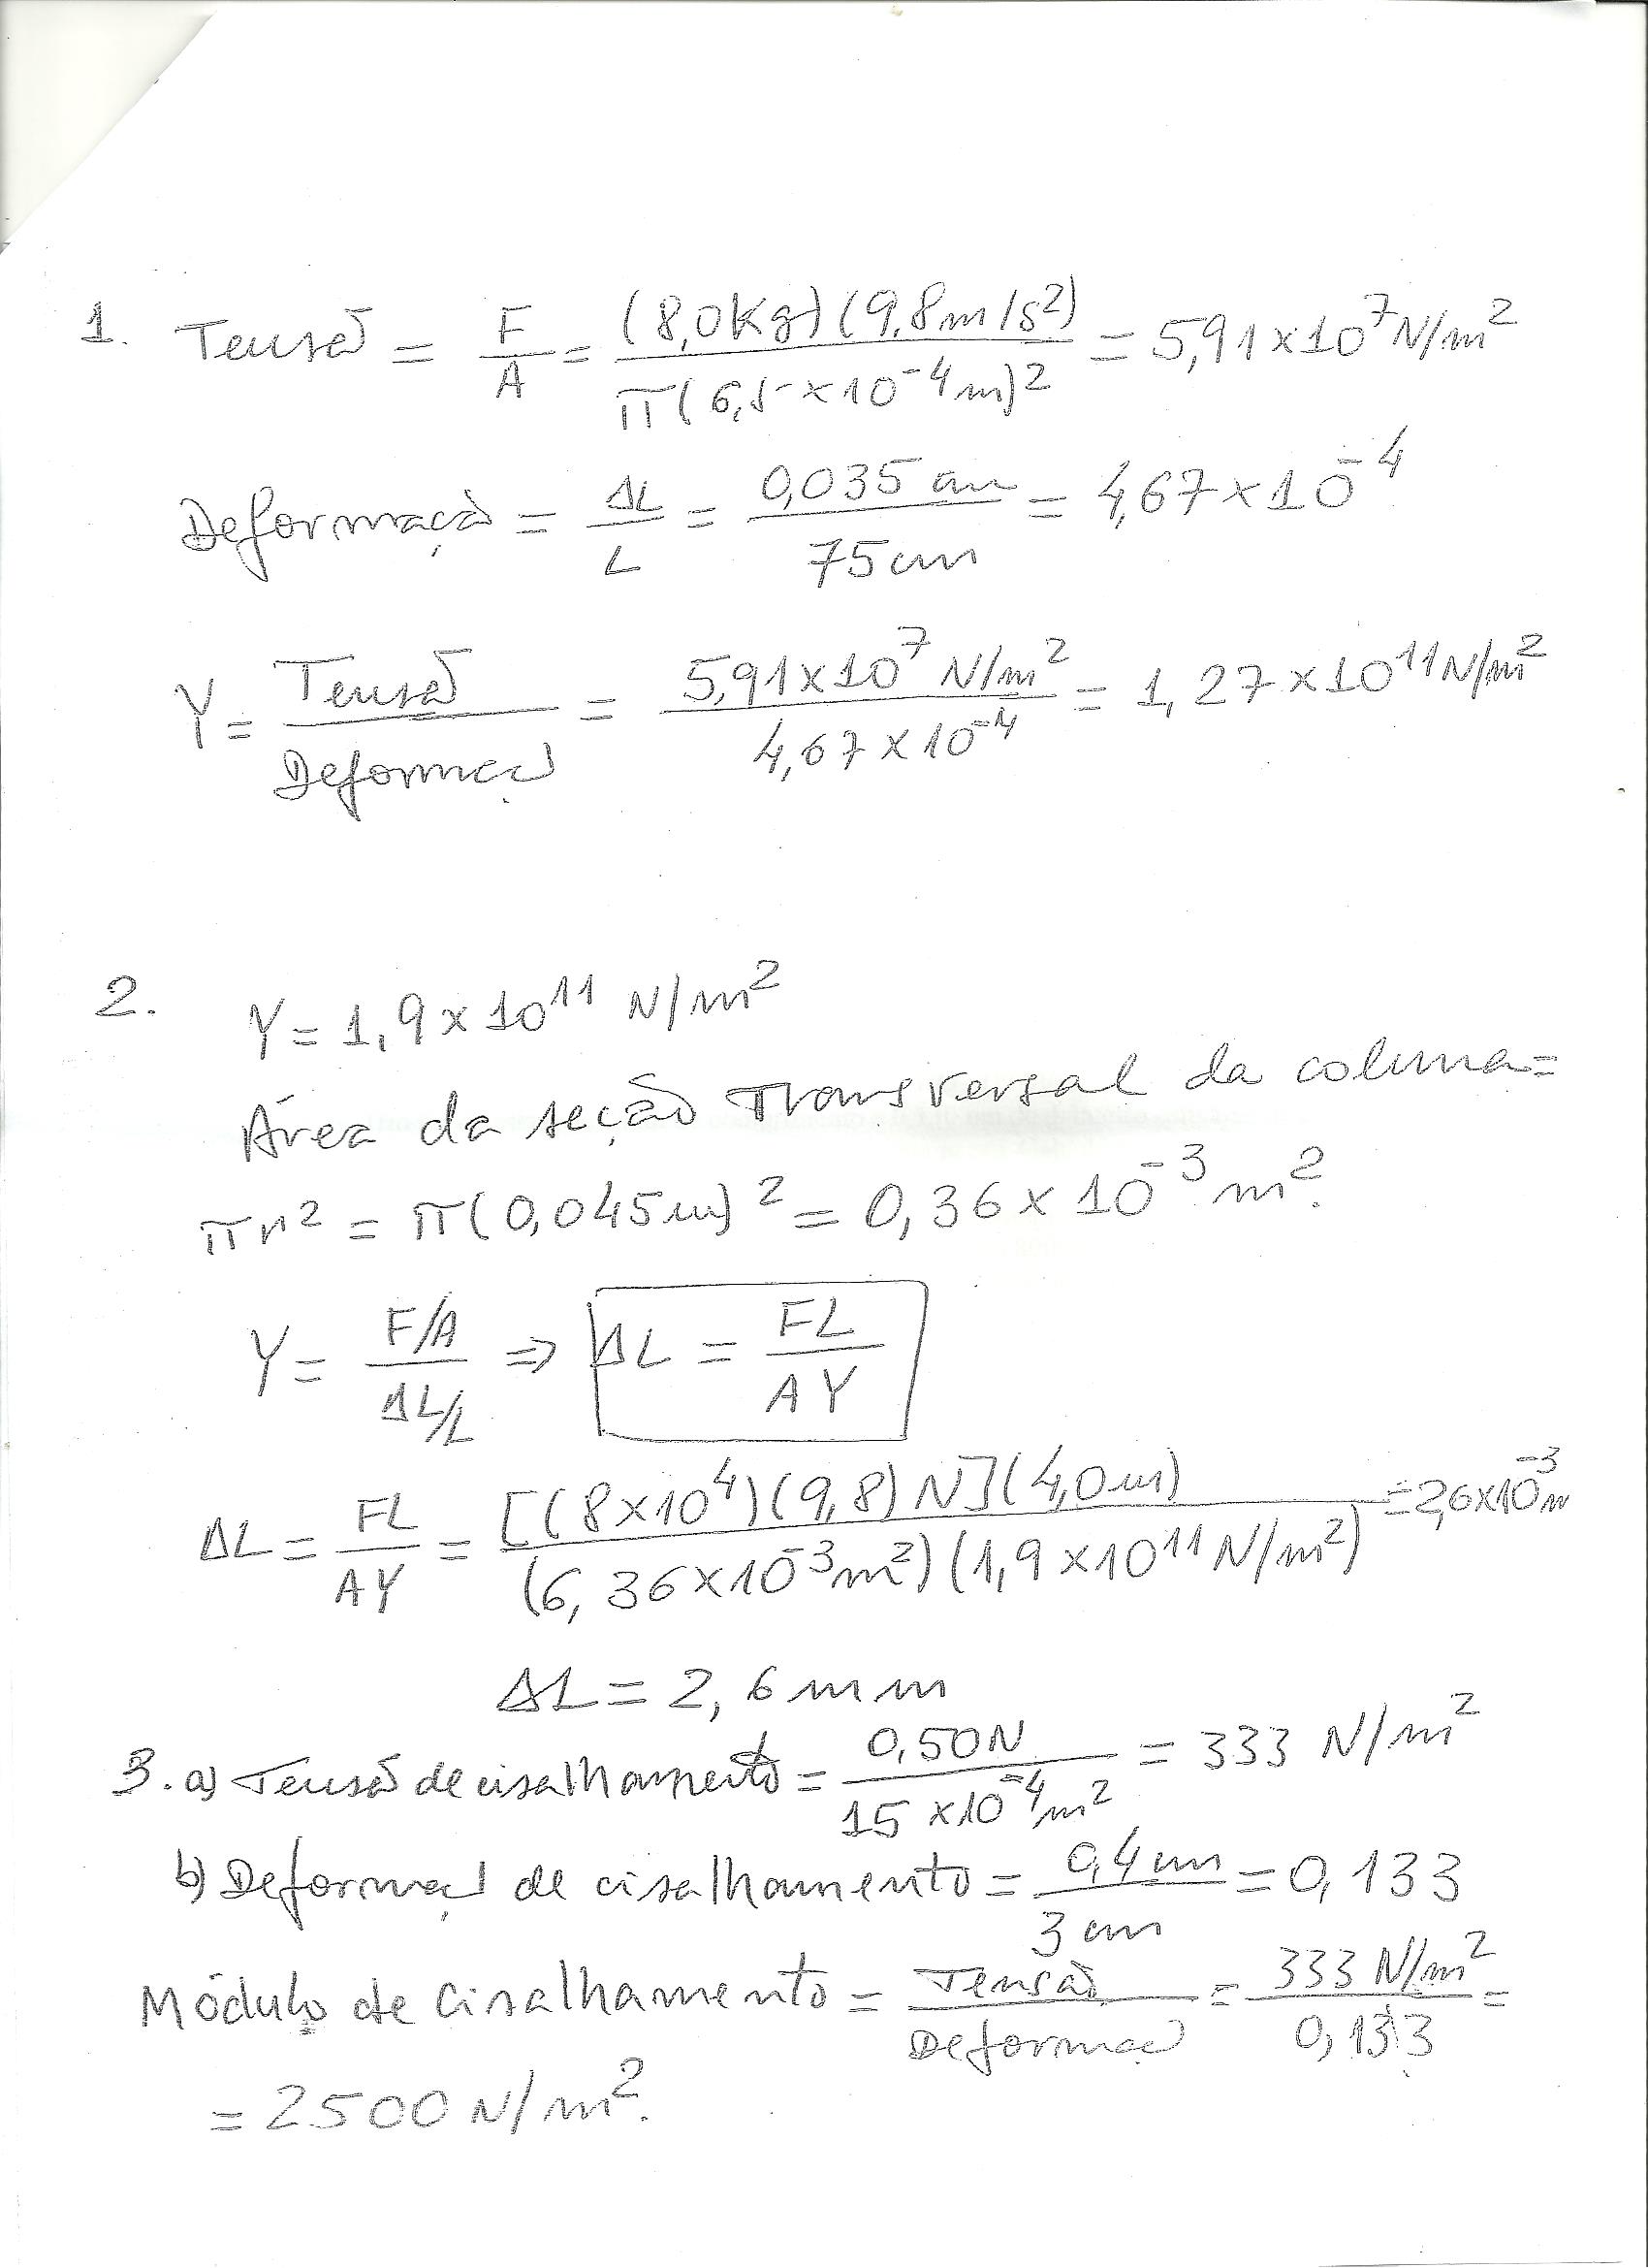 1. Tensão = F/A = (8,0Kg)(9,8m/s²)/π(6,5×10⁻⁴m)² = 5,91×10⁷N/m²
Deformação = ΔL/L = 0,035cm/75cm = 4,67×10⁻⁴
Y = Tensão/Deformação = 5,91×10⁷ N/m²/4,67×10⁻⁴ = 1,27×10¹¹N/m²
2. Y = 1,9×10¹¹ N/m²
Área da seção Transversal da coluna=
πr² = π(0,045m)² = 0,36×10⁻³m².
Y = F/A/ΔL/L ⇒ ΔL = FL/AY
ΔL = FL/AY = [(8×10⁴)(9,8)N](4,0m)/(6,36×10⁻³m²)(1,9×10¹¹N/m²) = 2,6×10⁻³m
ΔL = 2,6mm
3. a) Tensão de cisalhamento = 0,50N/15×10⁻⁴m² = 333 N/m²
b) Deformação de cisalhamento = 0,4cm/3cm = 0,133
Módulo de Cisalhamento = Tensão/Deformação = 333 N/m²/0,133 =
= 2500N/m².